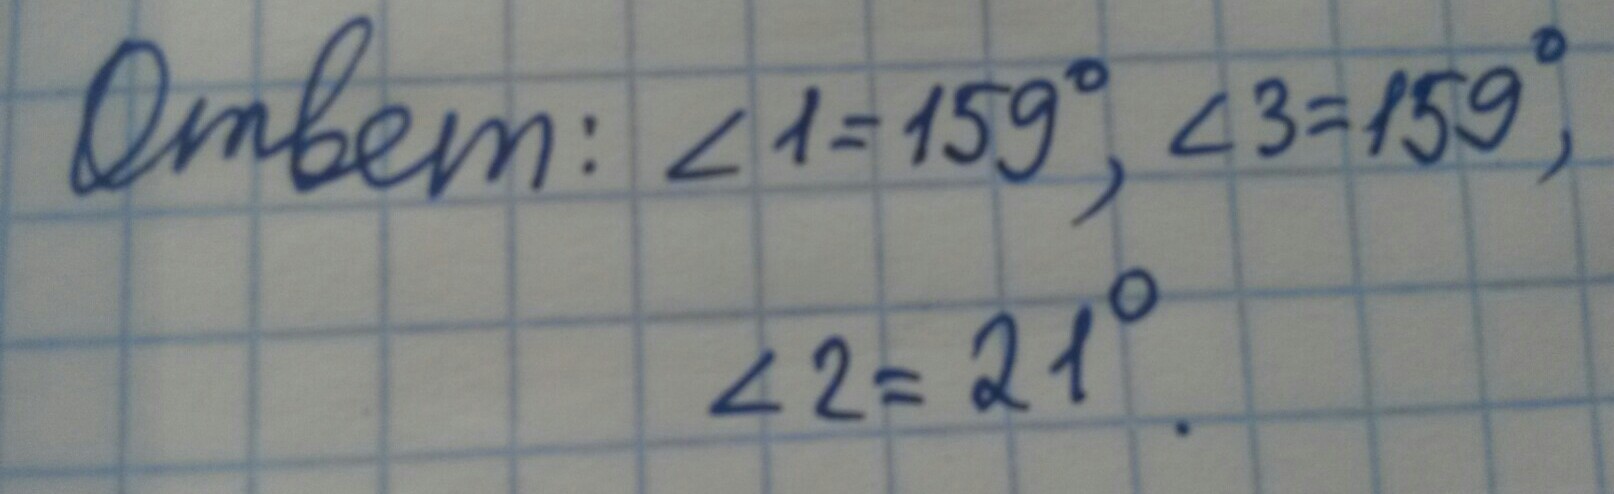 Ответ: ∠1=159°, ∠3=159°,
∠2=21°.